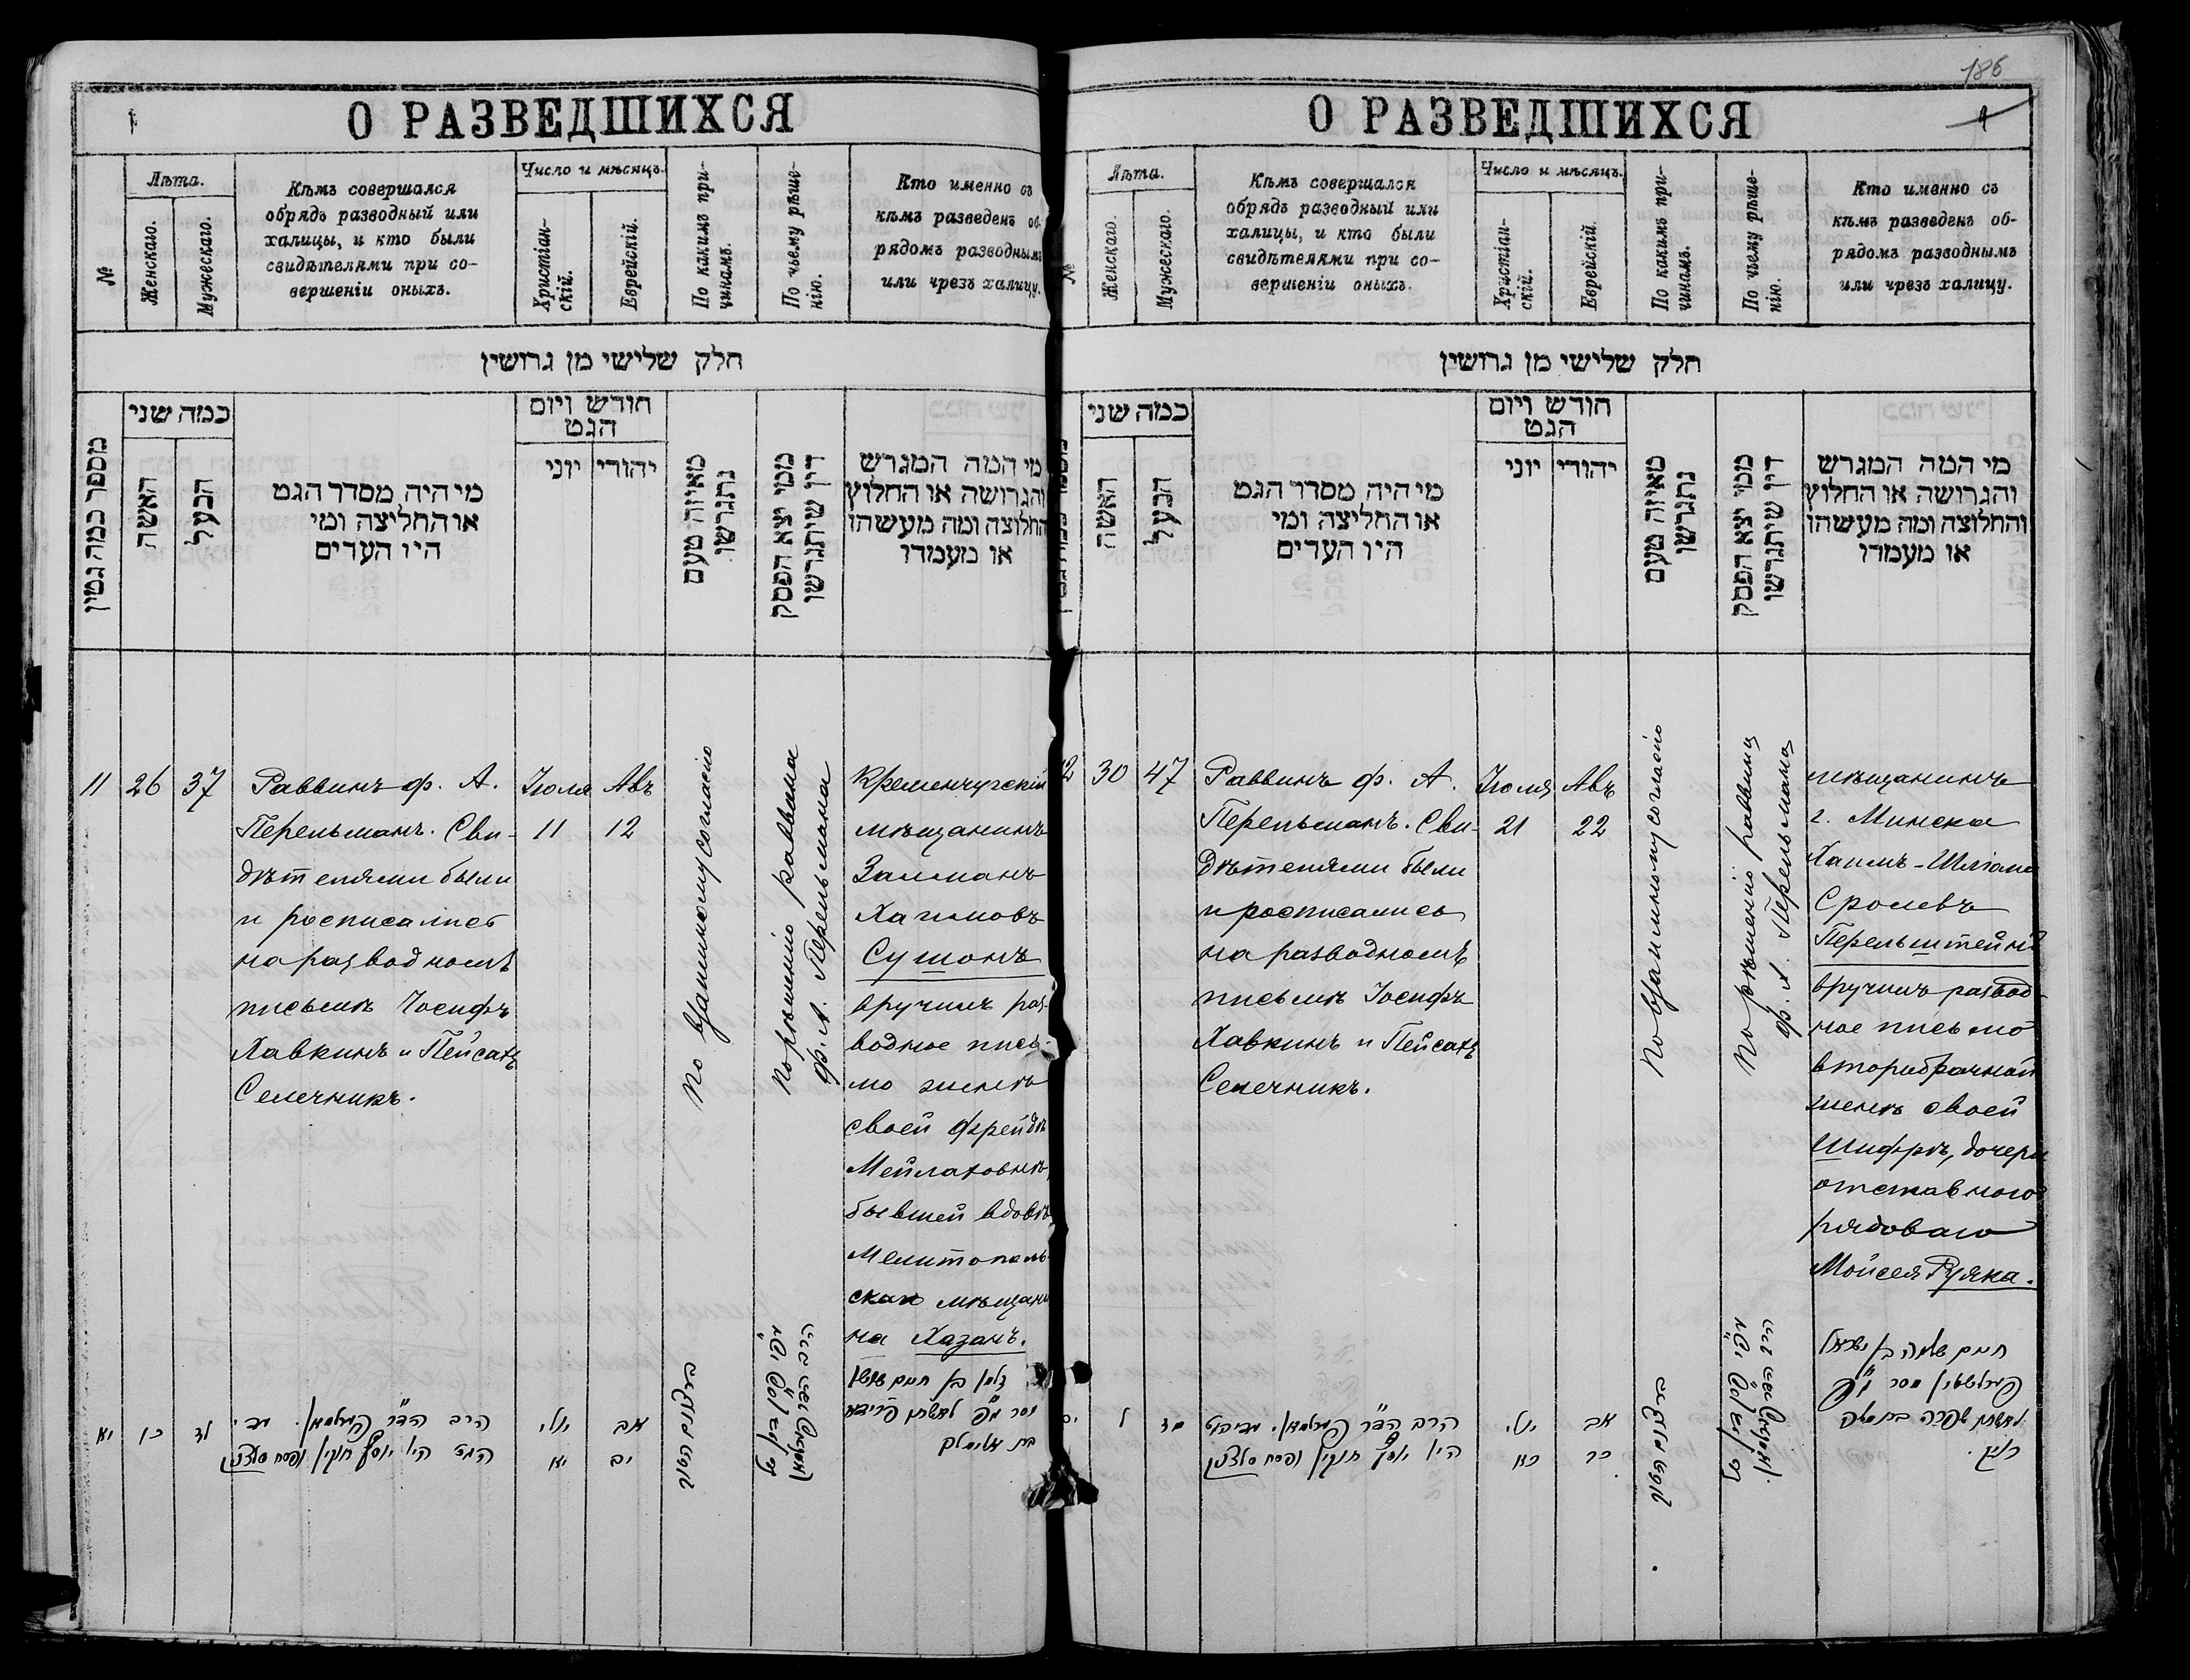 О РАЗВЕДШИХСЯ
№
Лѣта.
Женскаго.
Мужескаго.
Кѣмъ совершался
обрядъ разводный или
халицы, и кто были
свидѣтелями при со-
вершеніи оныхъ.
Число и мѣсяцъ.
Христіан-
скій.
Еврейскій.
По какимъ при-
чинамъ.
По чьему рѣше-
нію.
Кто именно съ
кѣмъ разведенъ об-
рядомъ разводнымъ
или чрезъ халицу.
חלק שלישי מן גרושין
מספר כמה גטין
כמה שני
האשה
הבעל
מי היה מסדר הגט
או החליצה ומי
היו העדים
חודש ויום
הגט
יוני
יהודי
מאיזה טעם
נתגרשו
ממי יצא הפסק
דין שיתגרשו
מי המה המגרש
והגרושה או החלוץ
והחלוצה ומה מעשהו
או מעמדו
11
26
37
Раввинъ ф. А.
Перельманъ. Сви-
дѣтелями были
и росписались
на разводномъ
письмѣ Іосифъ
Хавкинъ и Пейсахъ
Селечникъ.
Іюля
11
Авъ
12
По взаимному согласію
По рѣшенію раввина
ф. А. Перельмана
Кременчугскій
мѣщанинъ
Залманъ
Хаимовъ
Сушонъ
вручилъ раз-
водное пись-
мо женѣ
своей Фрейдѣ
Мейлаховнѣ,
бывшей вдовѣ
Мелитополь-
скаго мѣщани-
на Хазанъ.
יא
כו
לז
הרב הד״ר פערלמאן.
היו יוסף חוקין ופסח סלצניק
יולי
יא
אב
יב
זלמן בן חיים
מסר לאשתו פריידא
בת אלימלך
186
О РАЗВЕДШИХСЯ
№
Лѣта.
Женскаго.
Мужескаго.
Кѣмъ совершался
обрядъ разводный или
халицы, и кто были
свидѣтелями при со-
вершеніи оныхъ.
Число и мѣсяцъ.
Христіан-
скій.
Еврейскій.
По какимъ при-
чинамъ.
По чьему рѣше-
нію.
Кто именно съ
кѣмъ разведенъ об-
рядомъ разводнымъ
или чрезъ халицу.
חלק שלישי מן גרושין
כמה שני
האשה
הבעל
מי היה מסדר הגט
או החליצה ומי
היו העדים
חודש ויום
הגט
יוני
יהודי
מאיזה טעם
נתגרשו
ממי יצא הפסק
דין שיתגרשו
מי המה המגרש
והגרושה או החלוץ
והחלוצה ומה מעשהו
או מעמדו
12
30
47
Раввинъ ф. А.
Перельманъ. Сви-
дѣтелями были
и росписались
на разводномъ
письмѣ Іосифъ
Хавкинъ и Пейсахъ
Селечникъ.
Іюля
21
Авъ
22
По взаимному согласію
По рѣшенію раввина
ф. А. Перельмана
мѣщанинъ
г. Минска
Хаимъ-Шліома
Сролевъ
Перельштейнъ
вручилъ развод-
ное письмо
второбрачной
женѣ своей
Шифрѣ, дочери
отставного
рядоваго
Мойсея Рузяка.
ל
מז
הרב הד״ר פערלמאן.
היו יוסף חוקין ופסח סלצניק
יולי
כא
אב
כב
חיים שלמה בן ישראל
פערלשטיין מסר
לאשתו שפרה בת משה